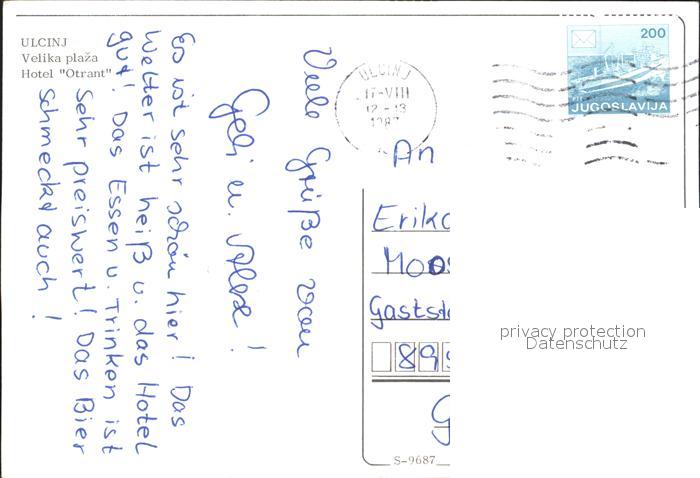 ULCINJ
Velika plaža
Hotel "Otrant"
Es ist sehr schön hier! Das
Wetter ist heiß u. das Hotel
gut! Das Essen u. Trinken ist
sehr preiswert! Das Bier
schmeckt auch!
Viele Grüße von
Geli u. Alex!
ULCINJ
17-VIII
12-13
200
JUGOSLAVIJA
An
Erika
Moos
Gastst
89
G
privacy protection
Datenschutz
S-9687